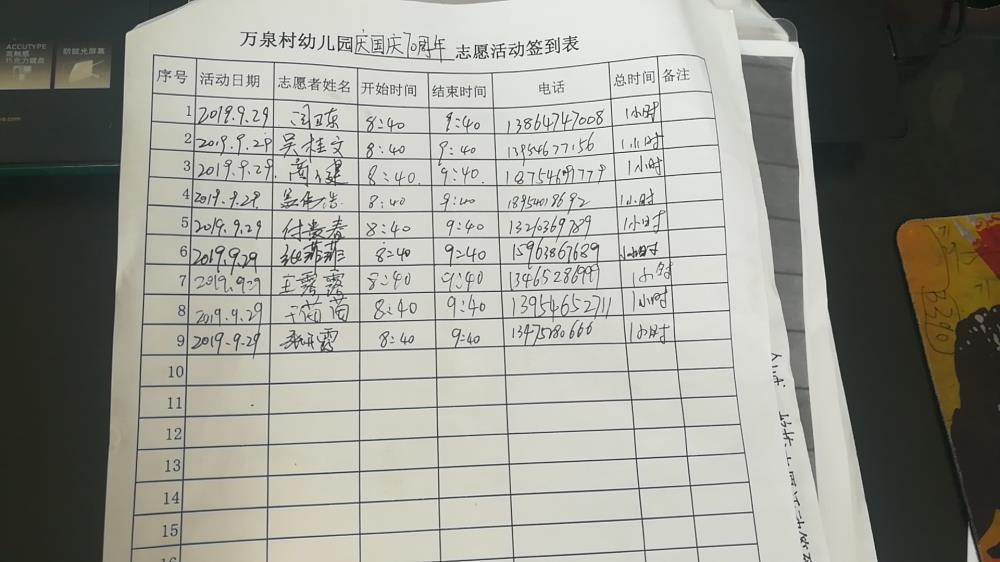 ACCUTYPE
防眩光屏幕
巧克力键盘
万泉村幼儿园庆国庆70周年志愿活动签到表
序号 活动日期 志愿者姓名 开始时间 结束时间 电话 总时间 备注
1 2019.9.29 8:40 9:40 13864747008 1小时
2 2019.9.29 吴桂文 8:40 9:40 13954677156 1小时
3 2019.9.29. 8:40. 9:40. 18754691779 1小时
4 2019.9.29 8:40 9:40 18954018692 1小时
5 2019.9.29 付爱春 8:40 9:40 13210369789 1小时
6 2019.9.29 张菲菲 8:40 9:40 15963867689 1小时
7 2019.9.29 王露露 8:40 9:40 13465286999 1小时
8 2019.9.29 于茵茵 8:40 9:40 13954652711 1小时
9 2019.9.29 8:40 9:40 13475280666 1小时
10
11
12
13
14
15
B390